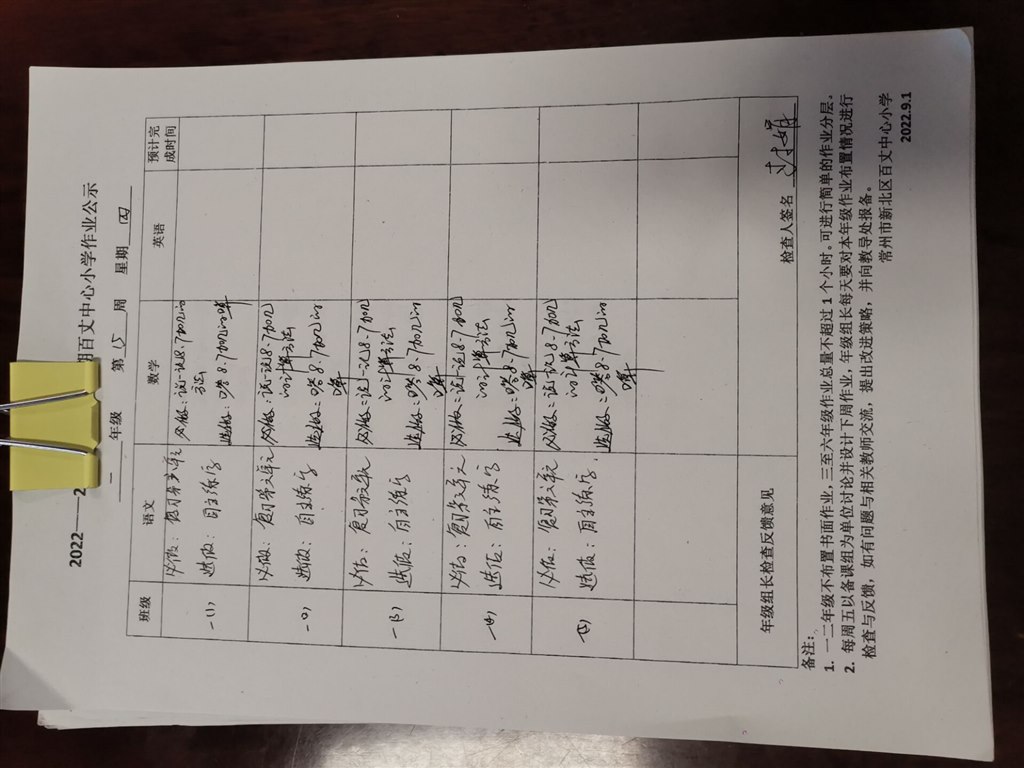 2022——2
期百丈中心小学作业公示
一 年级 第 5 周 星期 四
班级 语文 数学 英语 预计完成时间
一(1) 必做：复习第六单元 必做：说一说8、7加几的方法
选做：自主练习 选做：口答8、7加几的口算
一(2) 必做：复习第六单元 必做：说一说8、7加几的计算方法
选做：自主练习 选做：口答8、7加几的口算
一(3) 必做：复习第六单元 必做：说一说8、7加几的计算方法
选做：自主练习 选做：口答8、7加几的口算
一(4) 必做：复习第六单元 必做：说一说8、7加几的计算方法
选做：自主练习 选做：口答8、7加几的口算
一(5) 必做：复习第六单元 必做：说一说8、7加几的计算方法
选做：自主练习 选做：口答8、7加几的口算
年级组长检查反馈意见 检查人签名
备注：
1. 一二年级不布置书面作业，三至六年级作业总量不超过 1 个小时。可进行简单的作业分层。
2. 每周五以备课组为单位讨论并设计下周作业，年级组长每天要对本年级作业布置情况进行
检查与反馈，如有问题与相关教师交流，提出改进策略，并向教导处报备。
常州市新北区百丈中心小学
2022.9.1